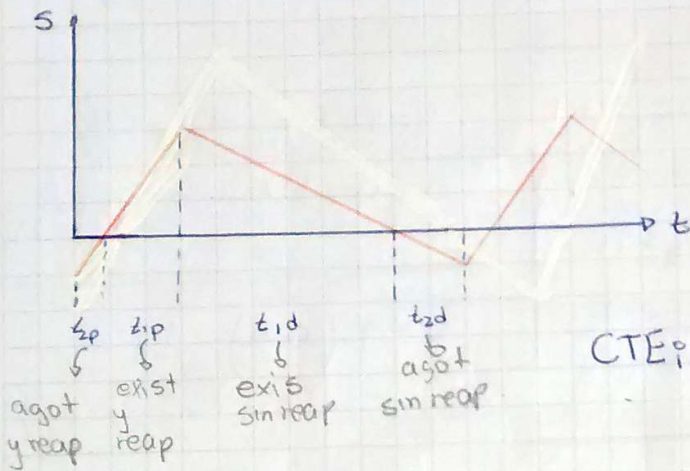 S
t
t2p t1p t1d t2d
agot
y reap
exist
y
reap
exis
sin reap
agot
sin reap
CTEi